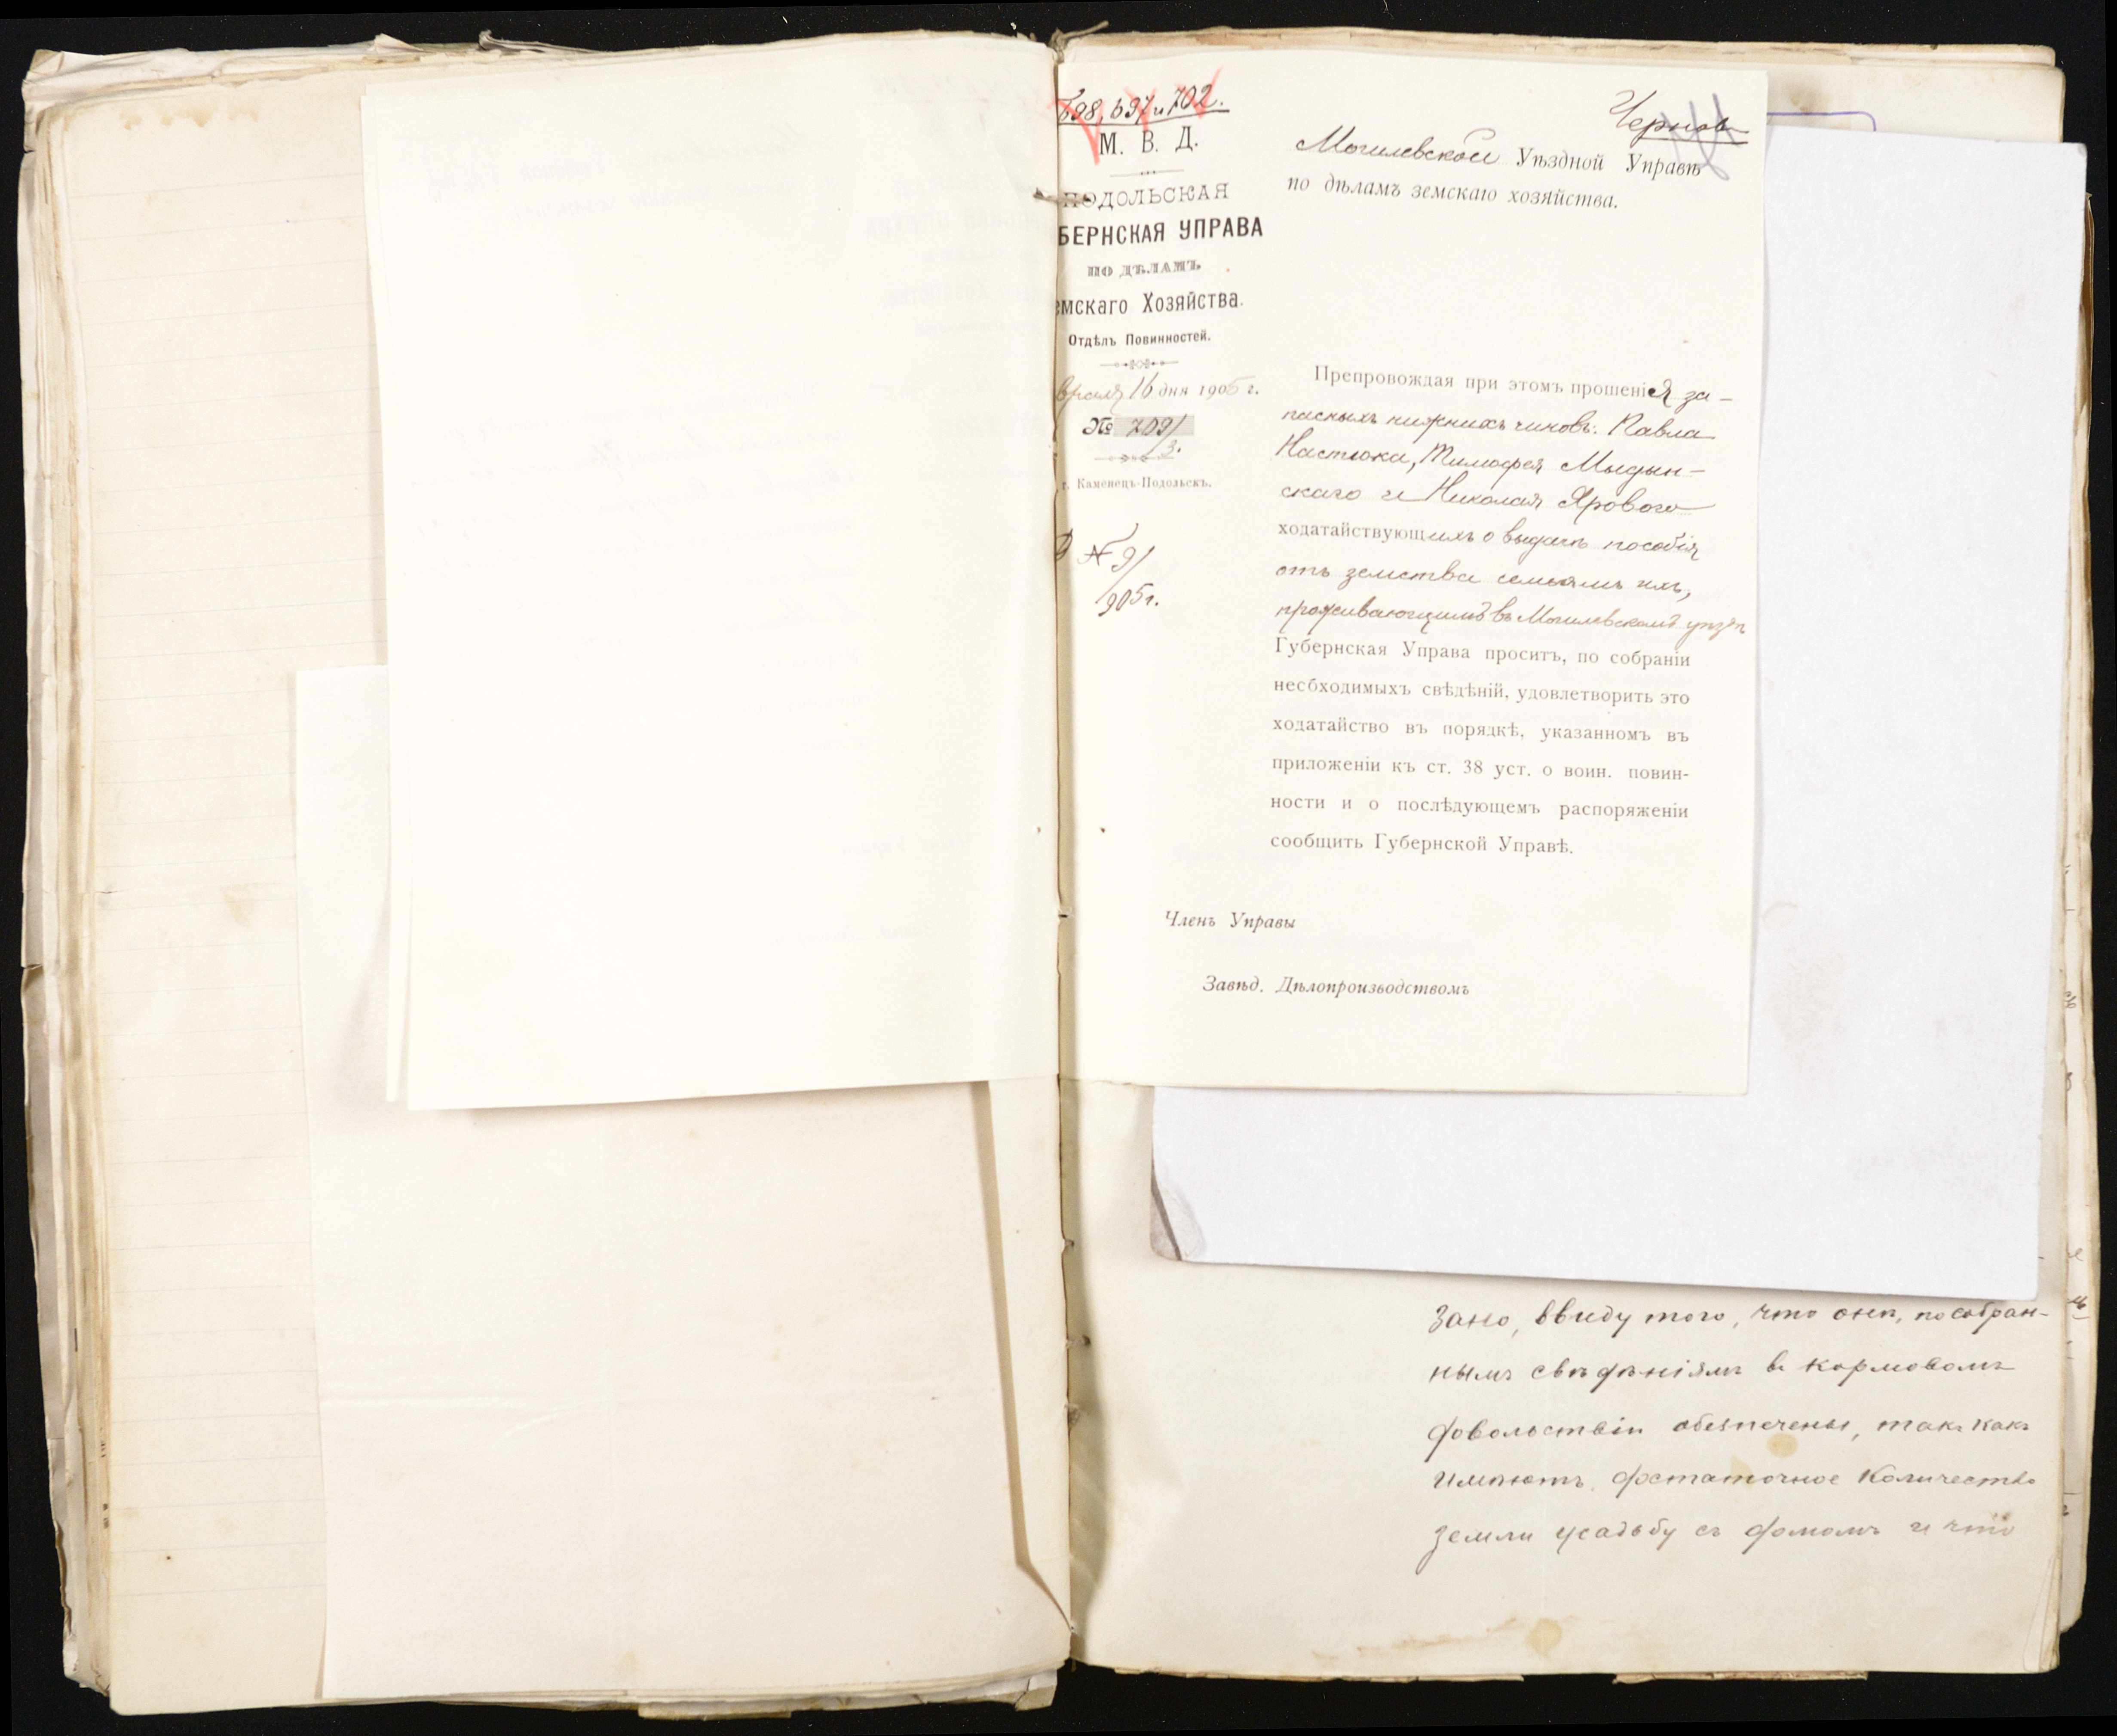 698, 697 и 702.
М. В. Д.
ПОДОЛЬСКАЯ
БЕРНСКАЯ УПРАВА
ПО ДѢЛАМЪ
емскаго Хозяйства.
Отдѣлъ Повинностей.
враля 16 дня 1905 г.
№ 709/3.
г. Каменецъ-Подольскъ.
№ 9/905 г.
Чернов
Могилевской Уѣздной Управѣ
по дѣламъ земскаго хозяйства.
Препровождая при этомъ прошенія за-
пасныхъ нижнихъ чиновъ: Павла
Настюка, Тимофея Мыдын-
скаго и Николая Ярового
ходатайствующихъ о выдачѣ пособія
отъ земства семьямъ ихъ,
проживающимъ въ Могилевскомъ уѣздѣ
Губернская Управа проситъ, по собраніи
несбходимыхъ свѣдѣній, удовлетворить это
ходатайство въ порядкѣ, указанномъ въ
приложеніи къ ст. 38 уст. о воин. повин-
ности и о послѣдующемъ распоряженіи
сообщить Губернской Управѣ.
Членъ Управы
Завѣд. Дѣлопроизводствомъ
зано, ввиду того, что они, по собран-
нымъ свѣдѣніямъ в кормовомъ
довольствіи обезпечены, такъ какъ
имѣютъ достаточное количество
земли усадьбу съ домомъ и что